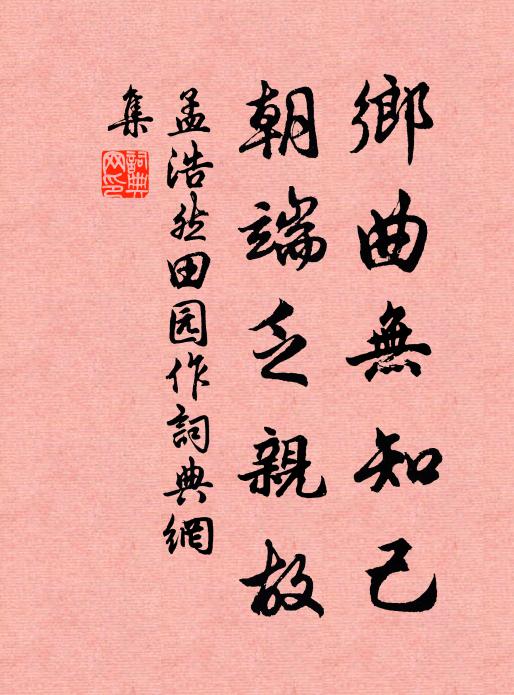 鄉曲無知己
朝端乏親故
孟浩然田园作詞典網
集
詞典网印